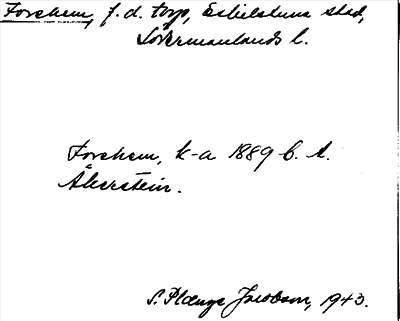 Forshem, f. d. torp, Eskilstuna stad,
Södermanlands l.
Forshem, k-a 1889 b. A.
Åkerstein.
S. Plænge Jacobson, 1943.